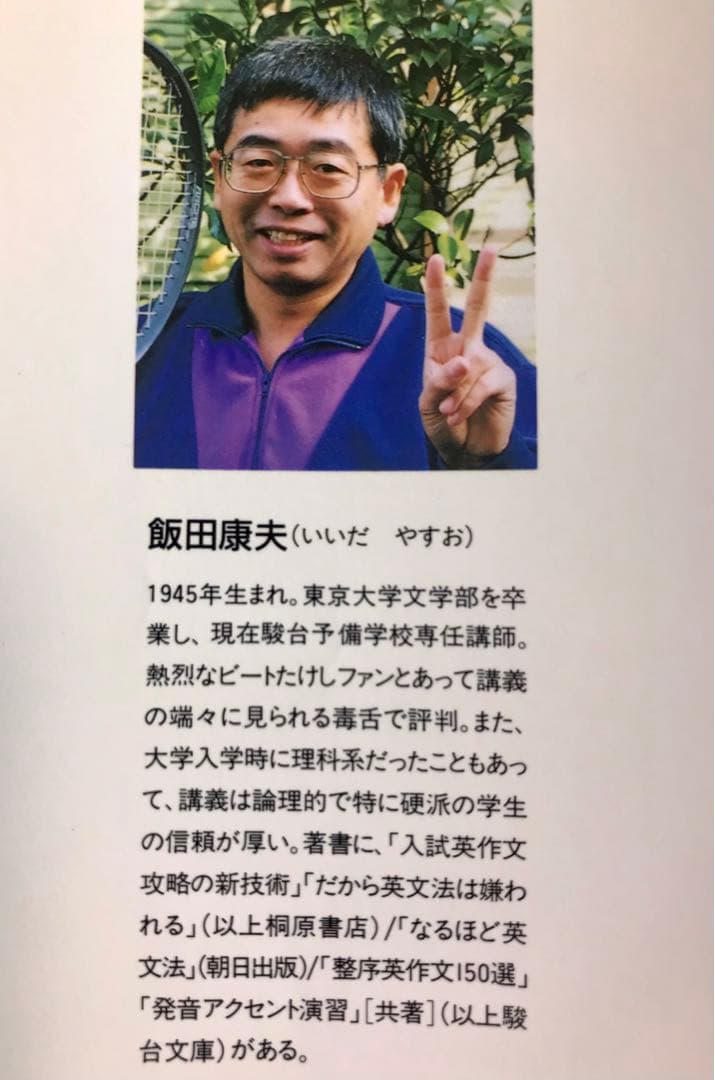 飯田康夫(いいだ やすお)
1945年生まれ。東京大学文学部を卒
業し、現在駿台予備学校専任講師。
熱烈なビートたけしファンとあって講義
の端々に見られる毒舌で評判。また、
大学入学時に理科系だったこともあっ
て、講義は論理的で特に硬派の学生
の信頼が厚い。著書に、「入試英作文
攻略の新技術」「だから英文法は嫌わ
れる」(以上桐原書店)/「なるほど英
文法」(朝日出版)/「整序英作文150選」
「発音アクセント演習」[共著](以上駿
台文庫)がある。